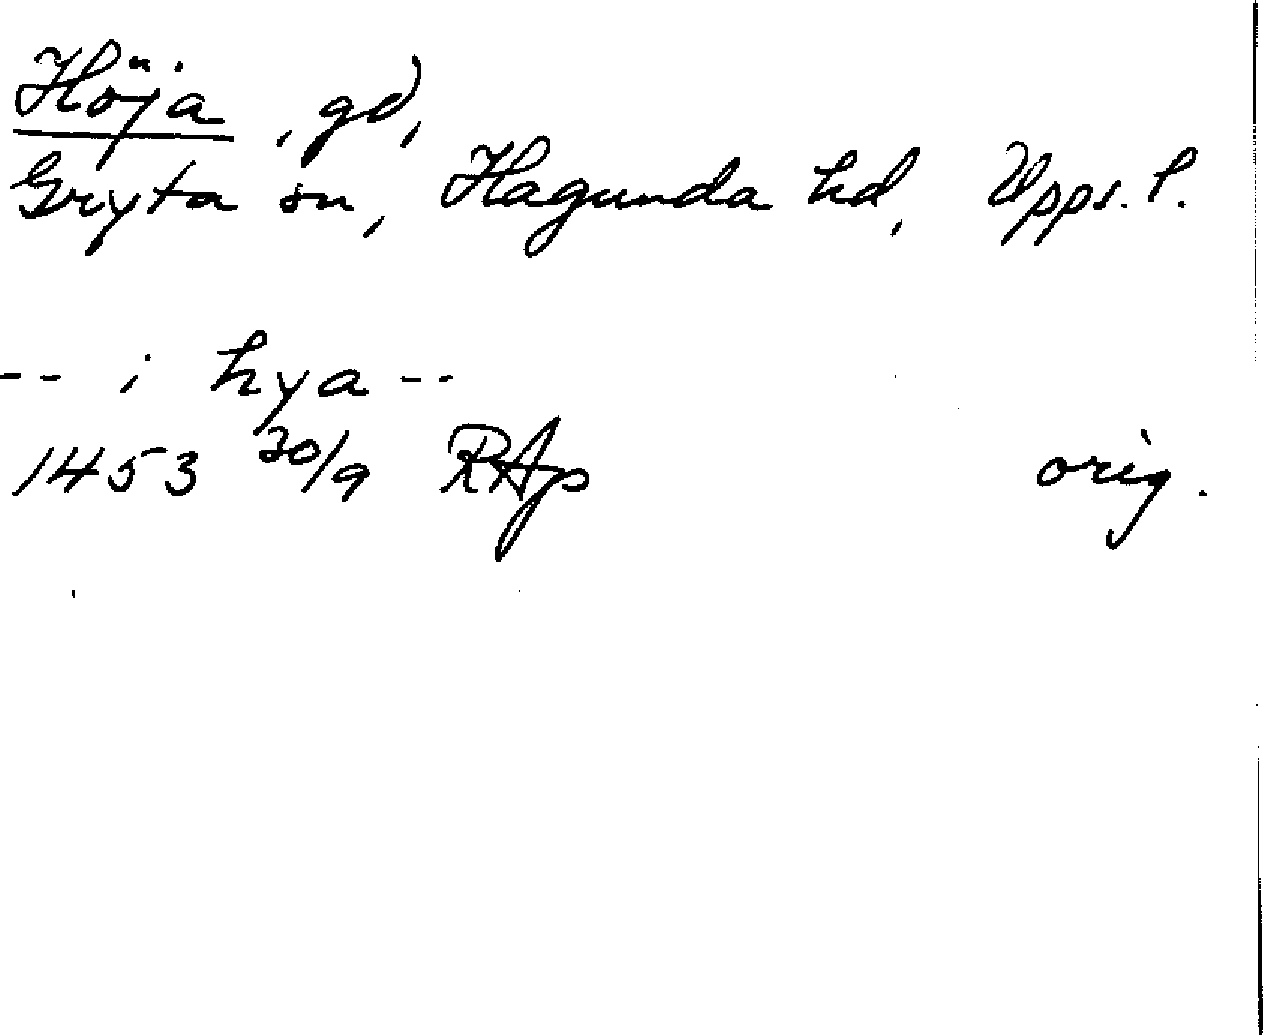 Höja, gd,
Gryta sn, Hagunda hd, Upps. l.
-- i hya --
1453 30/9 RAp orig.